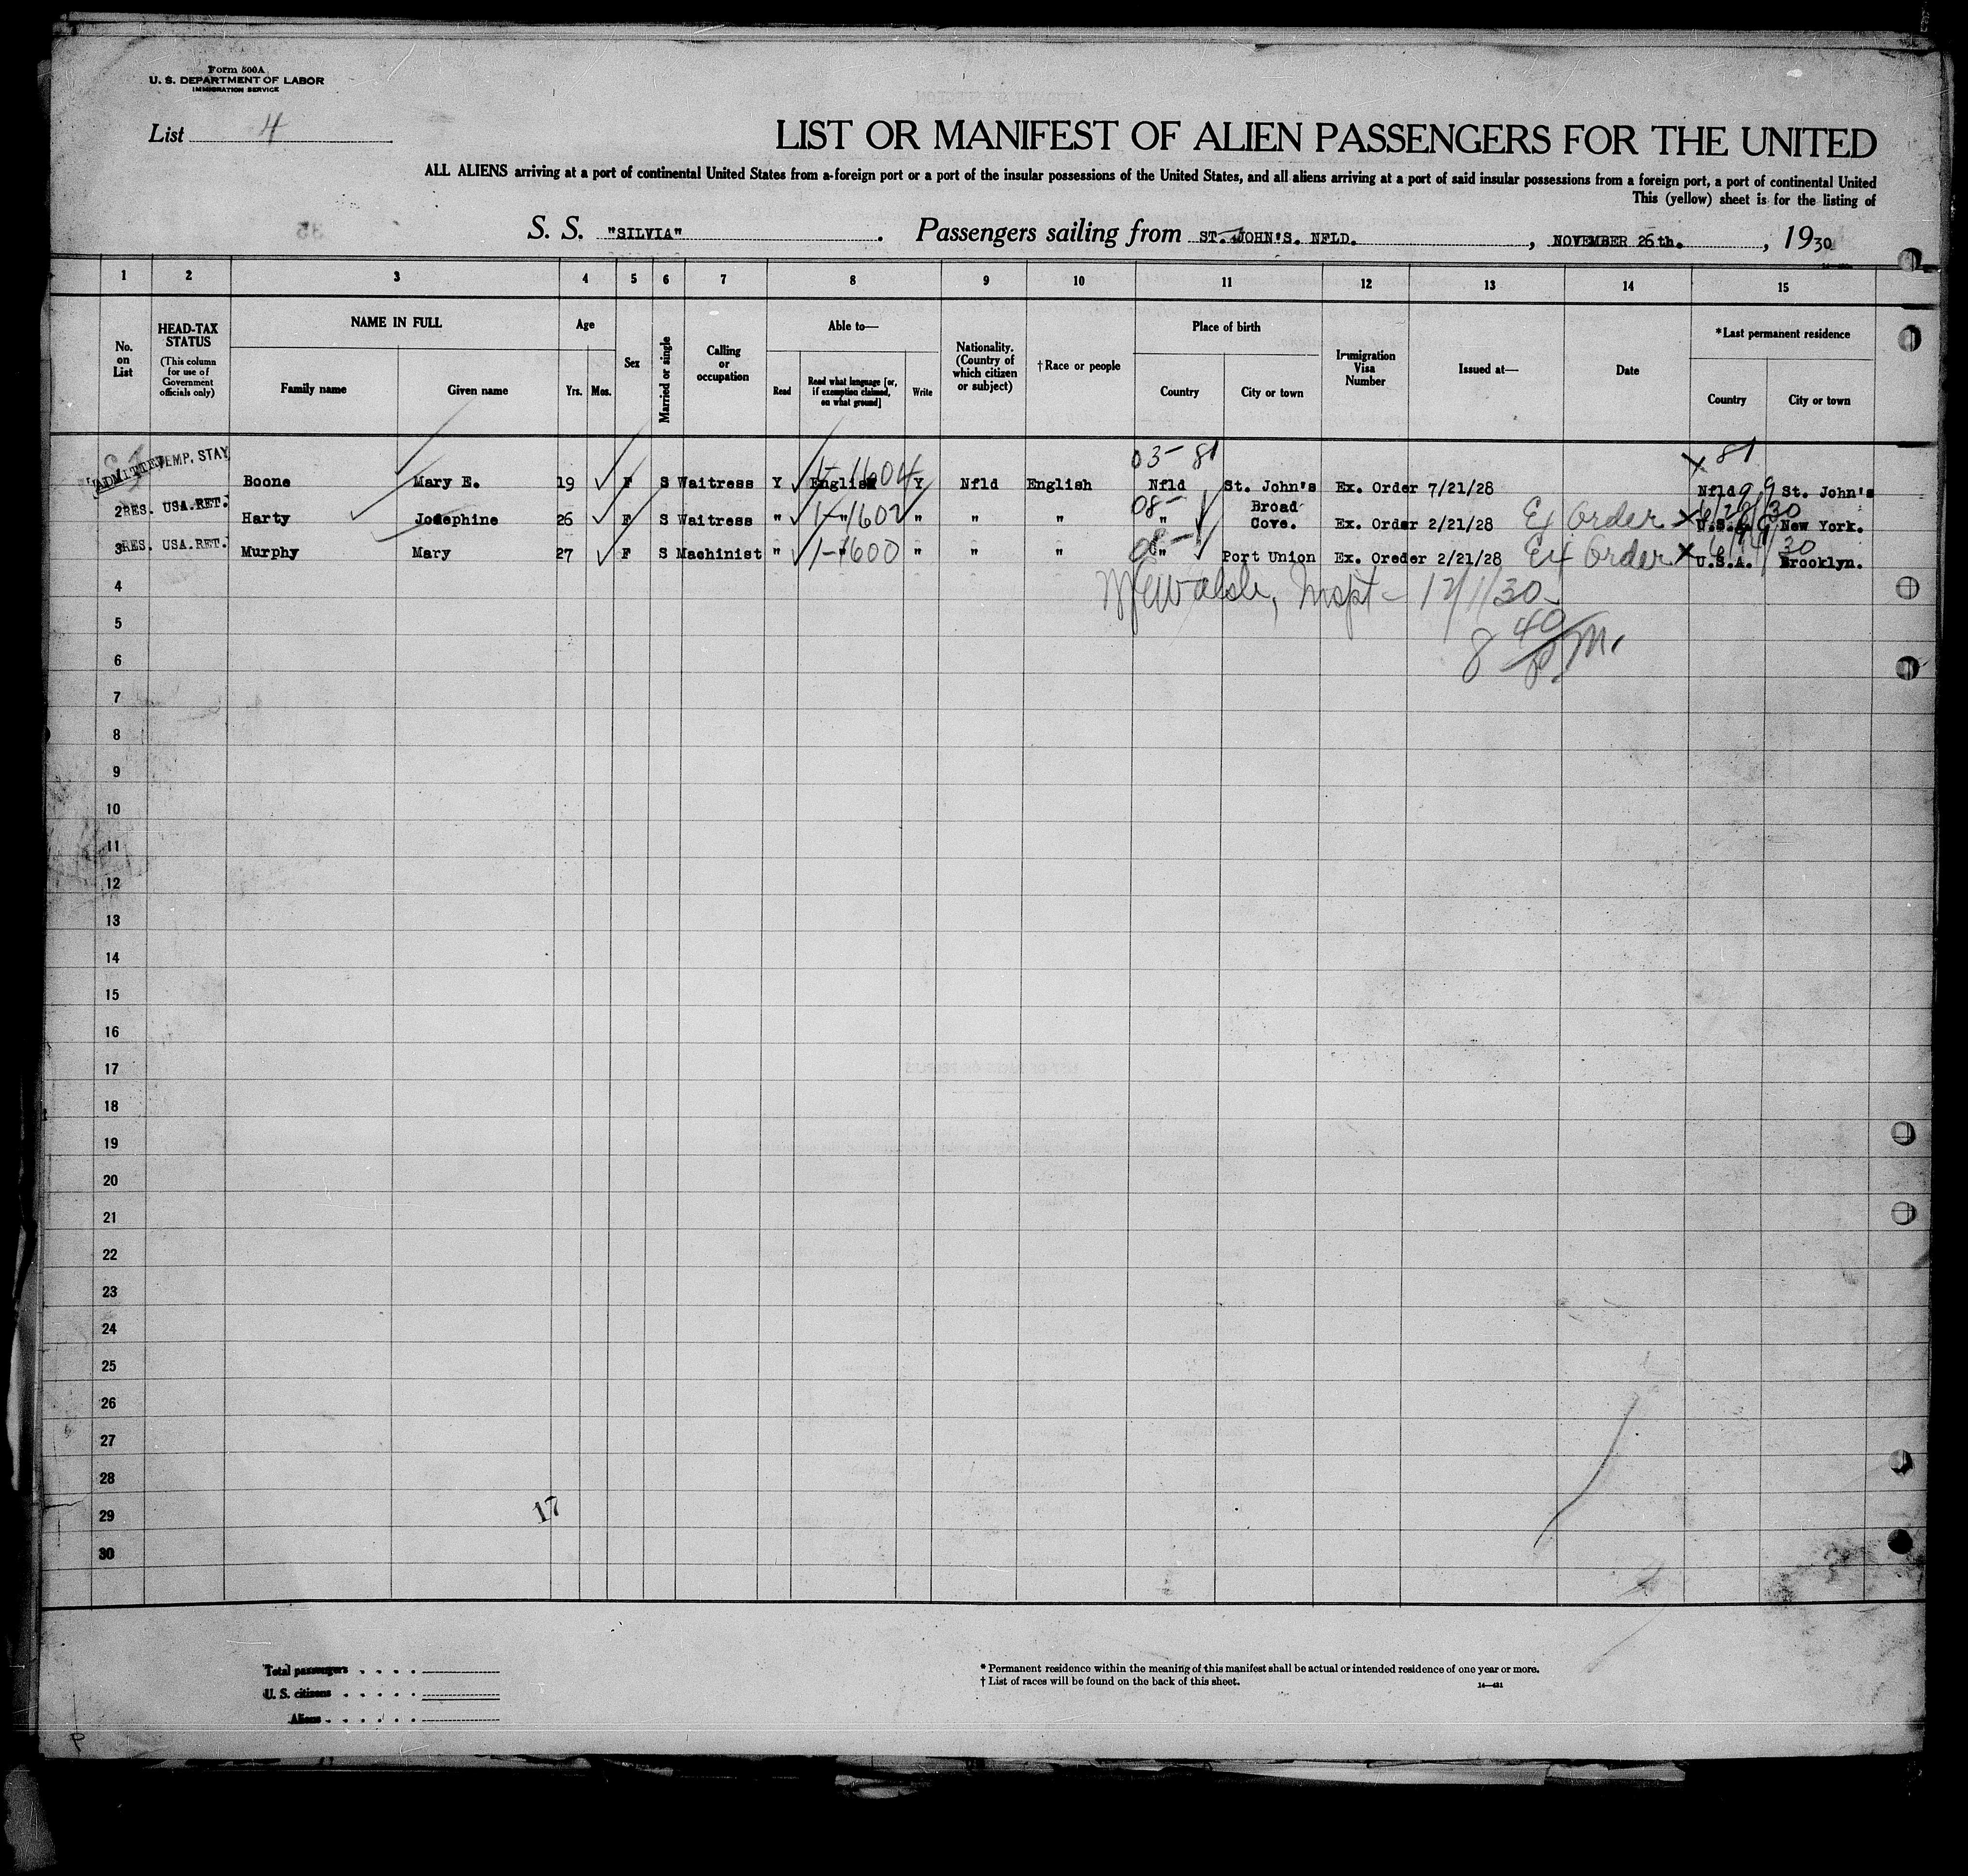 Form 500A
U. S. DEPARTMENT OF LABOR
IMMIGRATION SERVICE
List 4
LIST OR MANIFEST OF ALIEN PASSENGERS FOR THE UNITED
ALL ALIENS arriving at a port of continental United States from a foreign port or a port of the insular possessions of the United States, and all aliens arriving at a port of said insular possessions from a foreign port, a port of continental United
This (yellow) sheet is for the listing of
S. S. "SILVIA" . Passengers sailing from ST. JOHN'S. NFLD. , NOVEMBER 26th. , 1930
1 2 3 4 5 6 7 8 9 10 11 12 13 14 15
No. on List
HEAD-TAX STATUS (This column for use of Government officials only)
NAME IN FULL
Family name Given name
Age
Yrs. Mos.
Sex
Married or single
Calling or occupation
Able to—
Read Read what language [or, if exemption claimed, on what ground] Write
Nationality. (Country of which citizen or subject)
†Race or people
Place of birth
Country City or town
Immigration Visa Number
Issued at—
Date
*Last permanent residence
Country City or town
03- 81 X 81
ADMITTED TEMP. STAY Boone Mary E. 19 F S Waitress Y English 1-1604 Y Nfld English Nfld St. John's Ex. Order 7/21/28 Nfld St. John's
2 RES. USA. RET. Harty Josephine 26 F S Waitress " " 1-1602 " " " 08- " Broad Cove. Ex. Order 2/21/28 Ex Order X U.S.A. 6/28/30 New York.
3 RES. USA. RET. Murphy Mary 27 F S Machinist " " 1-1600 " " " 08- " Port Union Ex. Oreder 2/21/28 Ex Order X U.S.A. 30 Brooklyn.
4 Walsh, Inspt - 12/1/30
5 8 40
6 P M.
7
8
9
10
11
12
13
14
15
16
17
18
19
20
21
22
23
24
25
26
27
28
29 17
30
Total passengers . . . .
U. S. citizens . . . . .
Aliens . . . . . .
* Permanent residence within the meaning of this manifest shall be actual or intended residence of one year or more.
† List of races will be found on the back of this sheet. 14—421